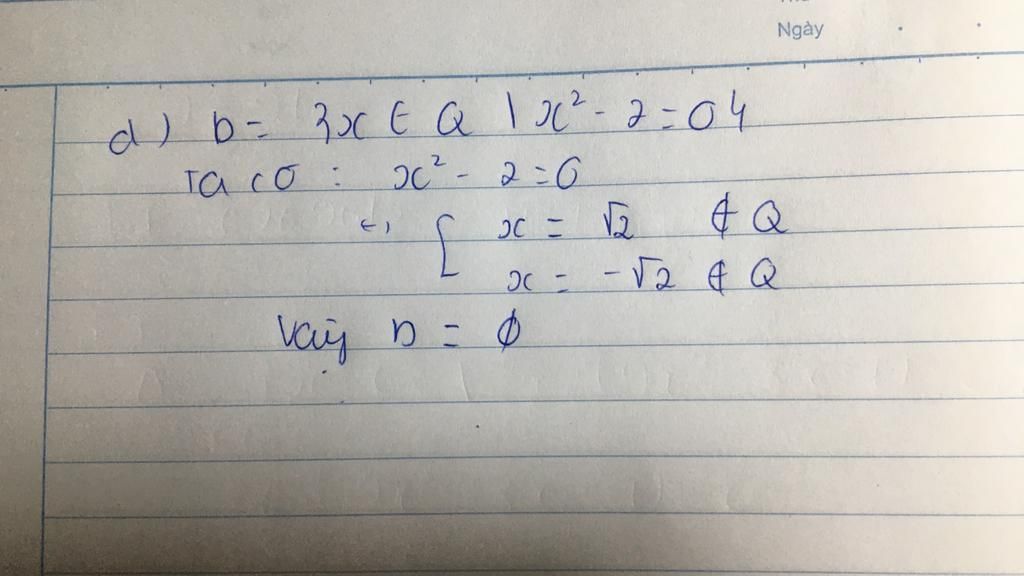 Ngày
d) D = {x ∈ Q | x² - 2 = 0}
Ta có : x² - 2 = 0
<=> [ x = √2 ∉ Q
x = -√2 ∉ Q
Vậy D = ∅